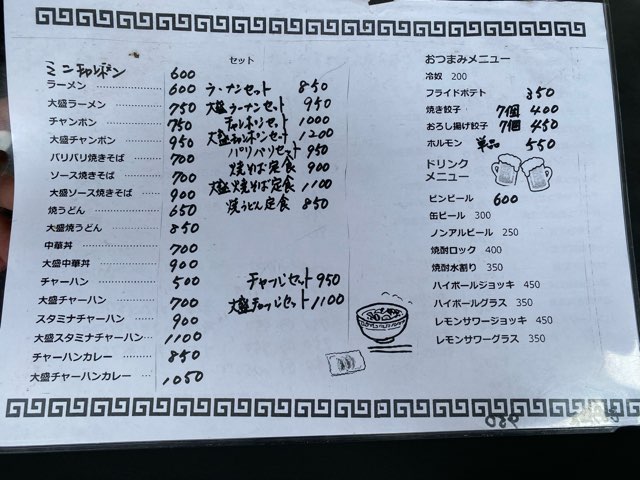 ミニチャンポン 600
ラーメン 600
大盛ラーメン 750
チャンポン 750
大盛チャンポン 950
パリパリ焼きそば 700
ソース焼きそば 700
大盛ソース焼きそば 900
焼うどん 650
大盛焼うどん 850
中華丼 700
大盛中華丼 900
チャーハン 500
大盛チャーハン 700
スタミナチャーハン 900
大盛スタミナチャーハン 1100
チャーハンカレー 850
大盛チャーハンカレー 1050
セット
ラーメンセット 850
大盛ラーメンセット 950
チャンポンセット 1000
大盛チャンポンセット 1200
パリパリセット 950
焼そば定食 900
大盛焼そば定食 1100
焼うどん定食 850
チャーハンセット 950
大盛チャーハンセット 1100
おつまみメニュー
冷奴 200
フライドポテト 350
焼き餃子 7個 400
おろし揚げ餃子 7個 450
ホルモン 単品 550
ドリンク
メニュー
ビンビール 600
缶ビール 300
ノンアルビール 250
焼酎ロック 400
焼酎水割り 350
ハイボールジョッキ 450
ハイボールグラス 350
レモンサワージョッキ 450
レモンサワーグラス 350